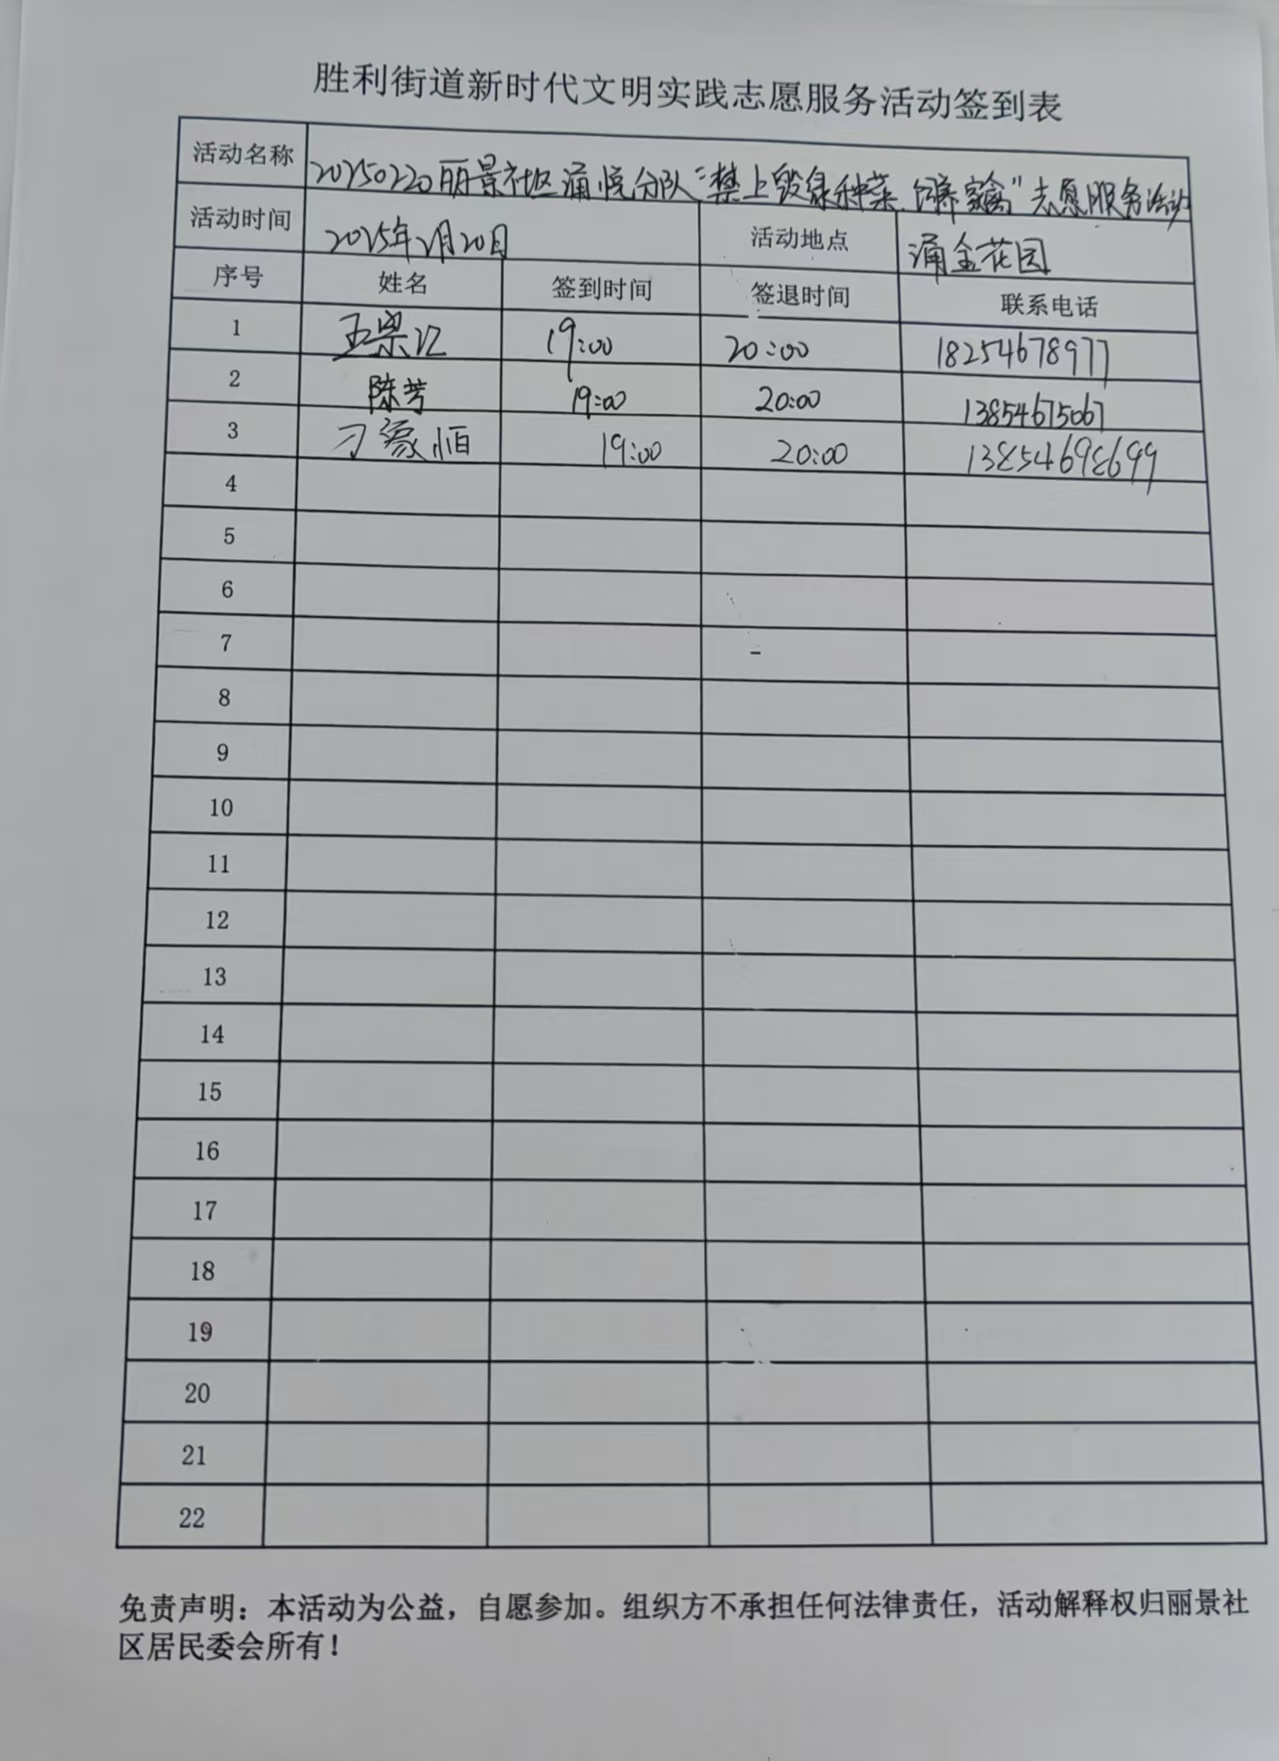 胜利街道新时代文明实践志愿服务活动签到表
活动名称 20250220丽景社区涌悦分队“禁止毁绿种菜 饲养家禽”志愿服务活动
活动时间 2025年2月20日 活动地点 涌金花园
序号 姓名 签到时间 签退时间 联系电话
1 19:00 20:00 18254678977
2 陈芳 19:00 20:00 13854675067
3 19:00 20:00 13854698699
4
5
6
7
8
9
10
11
12
13
14
15
16
17
18
19
20
21
22
免责声明：本活动为公益，自愿参加。组织方不承担任何法律责任，活动解释权归丽景社
区居民委会所有！